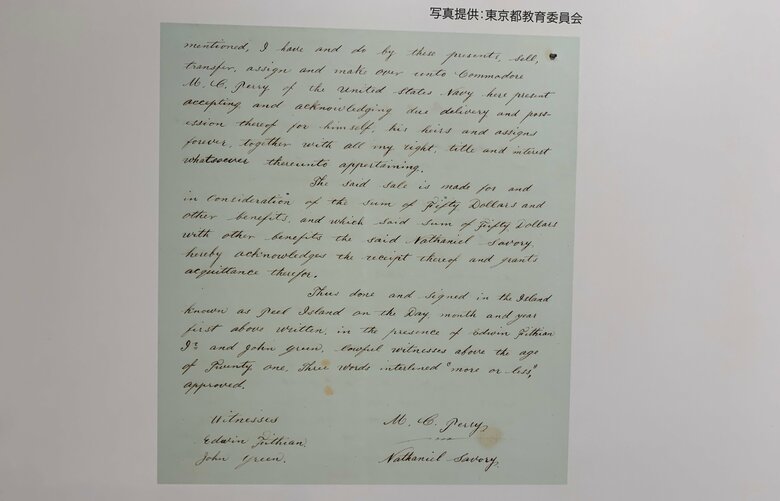 写真提供:東京都教育委員会
mentioned, I have and do by these presents, sell,
transfer, assign and make over unto Commodore
M. C. Perry of the United States Navy here present
accepting and acknowledging due delivery and poss-
ession thereof for himself, his heirs and assigns
forever, together with all my right, title and interest
whatsoever thereunto appertaining.
The said sale is made for and
in consideration of the sum of Fifty Dollars and
other benefits, and which said sum of Fifty Dollars
with other benefits the said Nathaniel Savory
hereby acknowledges the receipt thereof and grants
acquittance therefor.
Thus done and signed in the Island
known as Peel Island on the Day, month and year
first above written, in the presence of Edwin Fithian
Jr and John Green, lawful witnesses above the age
of Twenty one, Three words interlined "more or less,"
approved.
Witnesses
Edwin Fithian.
John Green.
M. C. Perry,
Nathaniel Savory.